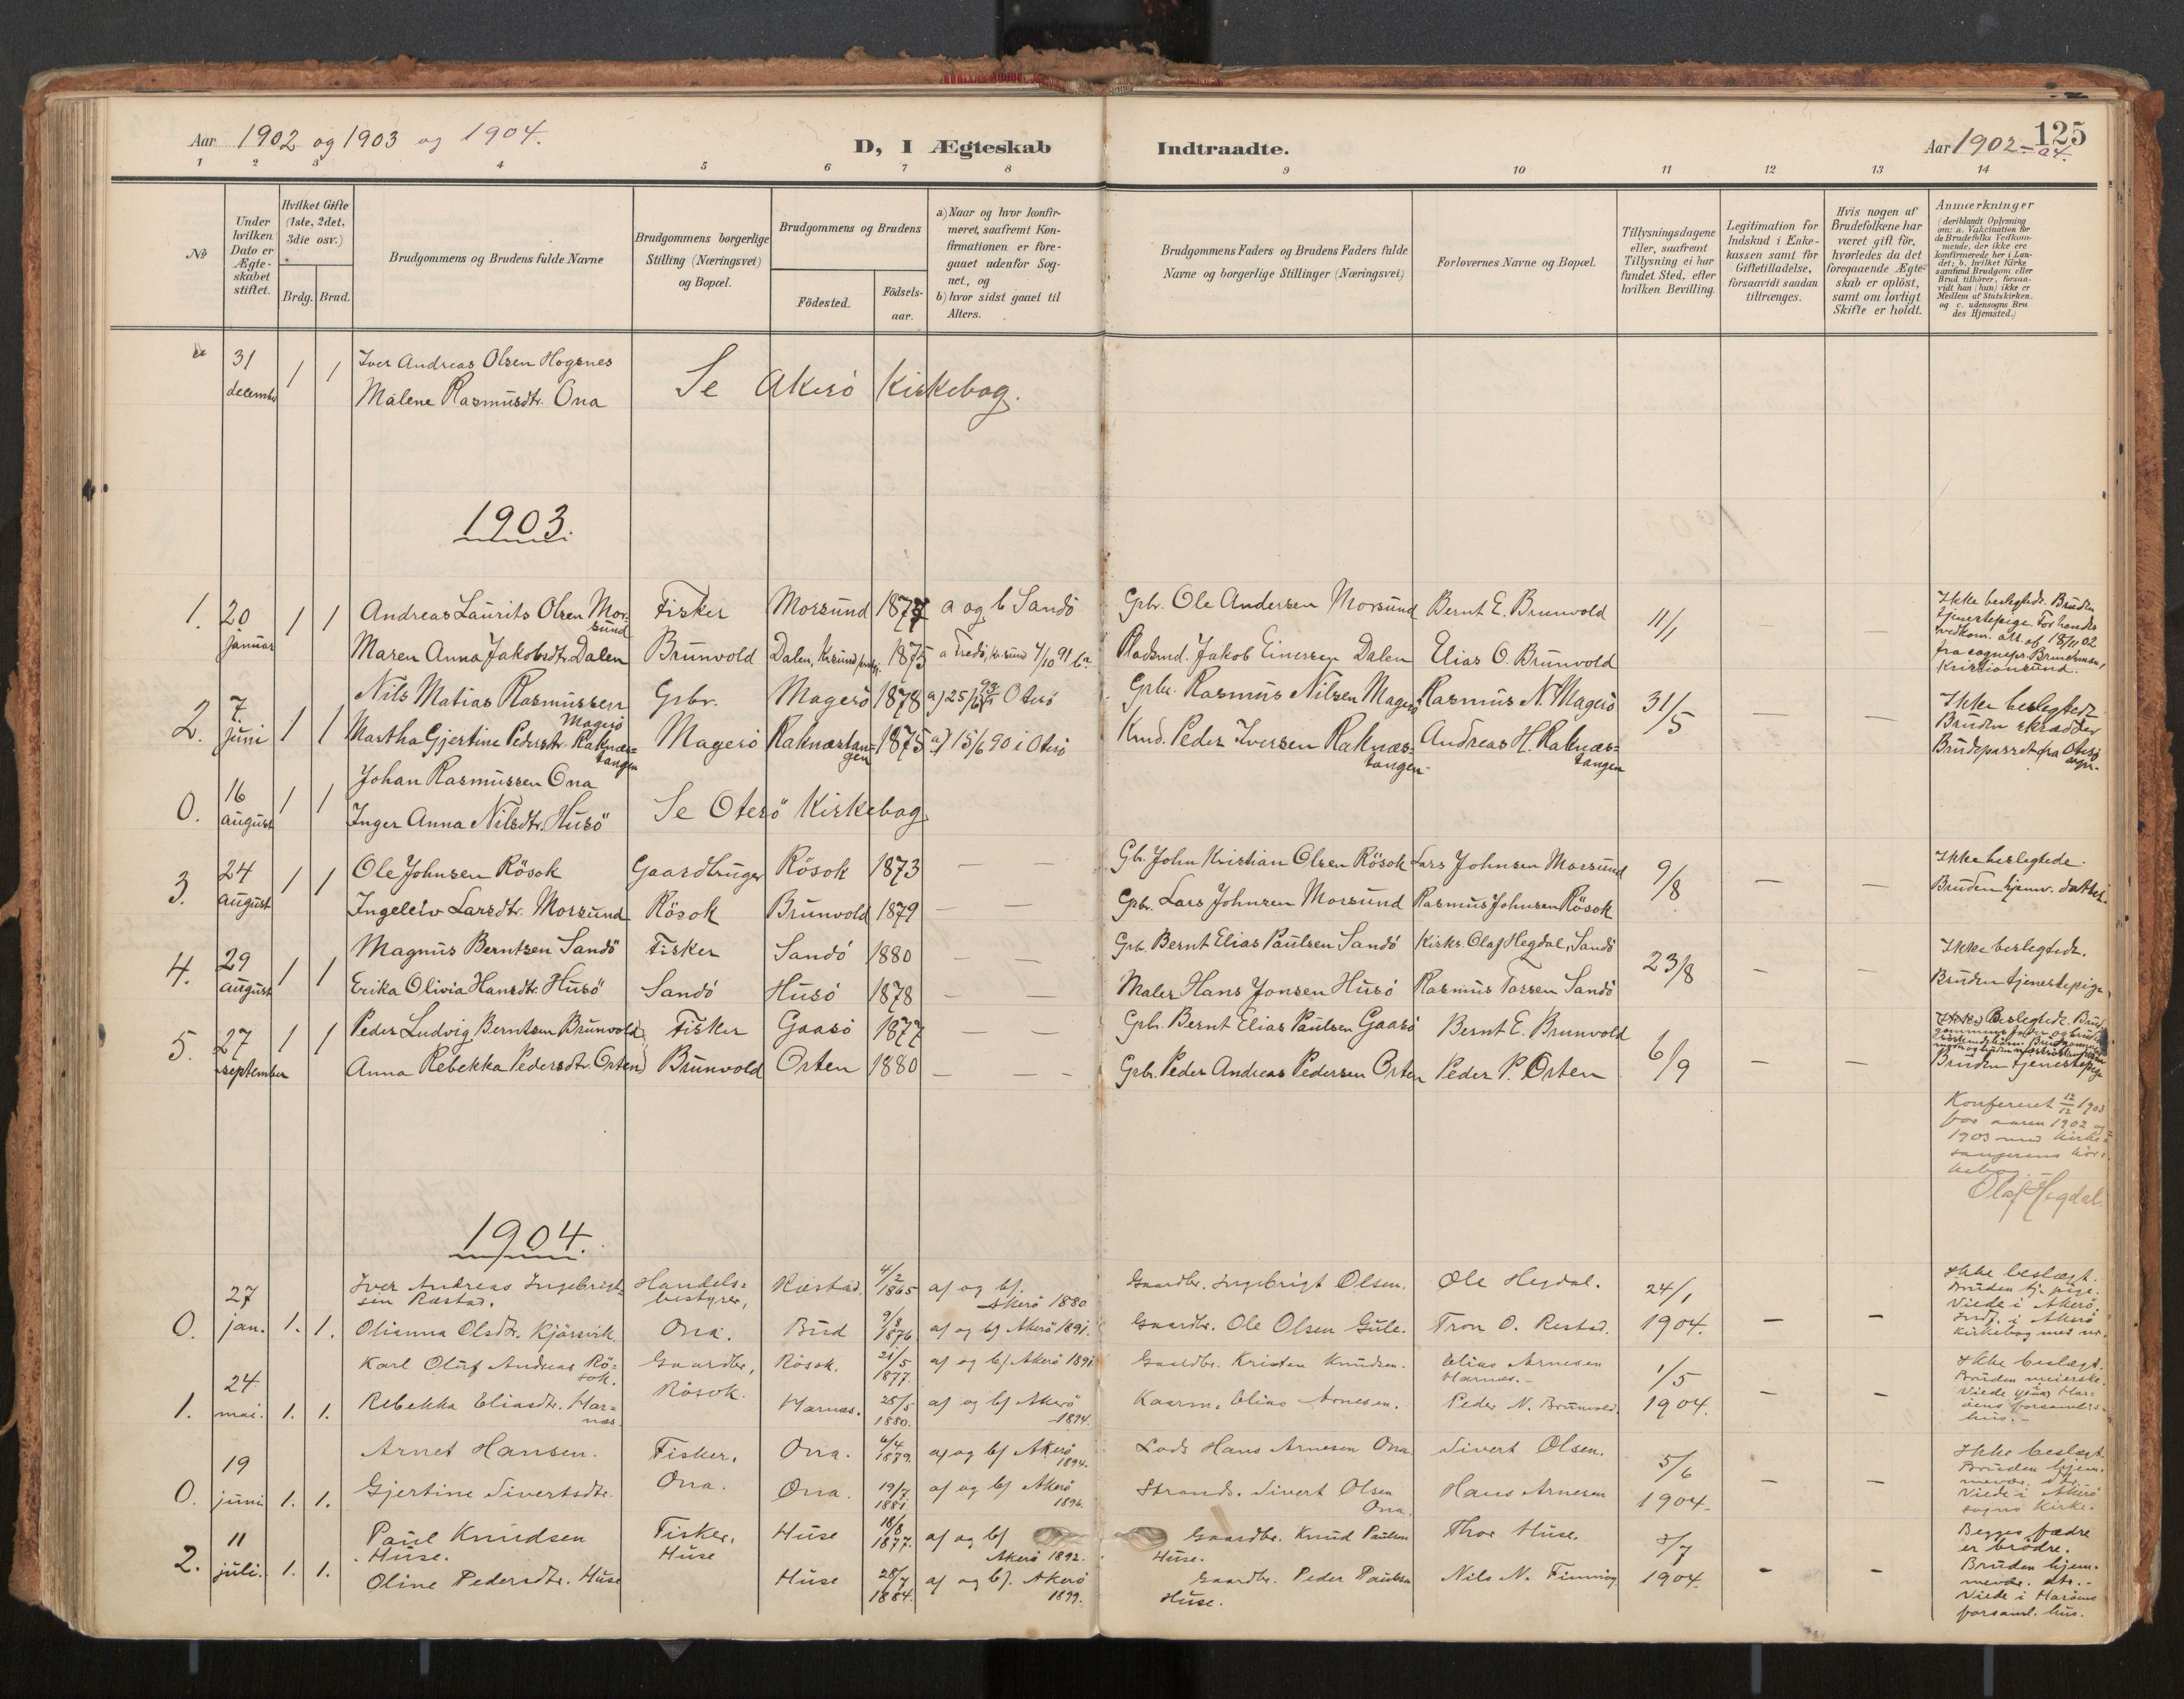 Aar 1902 og 1903 og 1904.
D, I Ægteskab Indtraadte.
Aar 1902-04.
125
1 2 3 4 5 6 7 8 9 10 11 12 13 14
No
Under hvilken Dato er Ægteskabet stiftet.
Hvilket Gifte (1ste, 2det, 3die osv.)
Brdg. Brud.
Brudgommens og Brudens fulde Navne
Brudgommens borgerlige Stilling (Næringsvei) og Bopæl.
Brudgommens og Brudens
Födested.
Födsels-aar.
a) Naar og hvor konfirmeret, saafremt Konfirmationen er foregaaet udenfor Sognet, og
b) hvor sidst gaaet til Alters.
Brudgommens Faders og Brudens Faders fulde Navne og borgerlige Stillinger (Næringsvei)
Forlovernes Navne og Bopæl.
Tillysningsdagene eller, saafremt Tillysning ei har fundet Sted, efter hvilken Bevilling.
Legitimation for Indskud i Enkekassen samt for Giftetilladelse, forsaavidt saadan tiltrænges.
Hvis nogen af Brudefolkene har været gift för, hvorledes da det foregaaende Ægteskab er oplöst, samt om lovligt Skifte er holdt.
Anmærkninger
(deriblandt Oplysning om: a. Vakcination for de Brudefolks Vedkommende, der ikke ere konfirmerede her i Landet; b. hvilket Kirkesamfund Brudgom eller Brud tilhörer, forsaavidt han (hun) ikke er Medlem af Statskirken. og c. udensogns Brudes Hjemsted.)
31 december 1 1 Iver Andreas Olsen Hogsnes
Malene Rasmusdtr. Ona
Se Akerö Kirkebog.
1903.
1. 20 januar 1 1 Andreas Laurits Olsen Morsund Fisker Morsund 1877 a og b Sandö Gpbr. Ole Andersen Morsund Bernt E. Brunvold 11/1 — — Ikke beslegtede. Bruden tjenestepige. For hendes vedkom. att. af 18/11 02 fra sognepr.
Maren Anna Jakobsdtr. Dalen Brunvold Dalen, 1875 Pladsmd. Jakob Einersen Dalen Elias O. Brunvold Kristiansund.
2. 7. juni 1 1 Nils Matias Rasmussen Magerö Gpbr. Magerö 1878 Oterö Gpbr. Rasmus Nilsen Magerö Rasmus N. Magerö 31/5 — — Ikke beslegtede
Martha Gjertine Pedersdtr. Raknæstangen Magerö Raknæstangen 1875 a) 15/6 90 i Oterö Kmd. Peder Iversen Raknæstangen Andreas H. Raknæstangen Bruden skrædder
0. 16 august 1 1 Johan Rasmussen Ona
Inger Anna Nilsdtr. Husö
Se Oterö Kirkebog
3. 24 august 1 1 Ole Johnsen Rösok Gaardbruger Rösok 1873 — — Gb. John Kristian Olsen Rösok Lars Johnsen Morsund 9/8 — — Ikke beslegtede.
Ingeleiv Larsdtr. Morsund Rösok Brunvold 1879 — — Gpbr. Lars Johnsen Morsund Rasmus Johnsen Rösok Bruden hjemv. datter.
4. 29 august 1 1 Magnus Berntsen Sandö Fisker Sandö 1880 — — Gpbr. Bernt Elias Paulsen Sandö Kirks. Olaf Hegdal, Sandö 23/8 — — Ikke beslegtede.
Erika Olivia Hansdtr. Husö Sandö Husö 1878 — — Maler Hans Jonsen Husö Rasmus Torsen Sandö Bruden tjenestepige.
5. 27 september 1 1 Peder Ludvig Berntsen Brunvold Fisker Gaasö 1877 — — Gpbr. Bernt Elias Paulsen Gaasö Bernt E. Brunvold 6/9 — — Beslegtede.
Anna Rebekka Pedersdtr. Orten Brunvold Orten 1880 — — — Gpbr. Peder Andreas Pedersen Orten Peder P. Orten Bruden tjenestepige
Konfereret 12/12 1903
for aaren 1902 og
1903 med kirke-
sangerens
Olaf Hegdal.
1904.
0. 27 jan. 1. 1. Iver Andreas Ingebrigtsen Ræstad. Handelsbestyrer, Ræstad. 4/2 1865 a/ og b/. Akerö 1880 Gaardbr. Ingebrigt Olsen. Ole Hegdal. 24/1 1904. - - Ikke beslægt. Bruden tj. pige. Viede i Akerö.
Olianna Olsdtr. Kjörsvik. Ona. Bud 1876 a/ og b/ Akerö 1891. Gaardbr. Ole Olsen Gule. Tron O. Restad. Indf. i Akerö kirkebog med nr.
1. 24 mai. 1. 1. Karl Oluf Andreas Rösok. Gaardbr, Rösok. 21/5 1877. a/ og b/ Akerö 1891 Gaardbr. Kristen Knudsen. Elias Arnesen Harnæs. - 1/5 1904. - - Ikke beslægt. Bruden meierske.
Rebekka Eliasdtr. Harnæs. Rösok. Harnæs. 28/5 1880. a/ og b/ Akerö 1894. Kaarm. Elias Arnesen. Peder N. Brunvold. Viede paa Haröens forsamlingshus. -
0. 19 juni 1. 1. Arnet Hansen. Fisker, Ona. 6/4 1879. a/ og b/ Akerö 1894. Lods Hans Arnesen Ona Sivert Olsen. 5/6 1904. - - Ikke beslægt. Bruden hjemmevær. dtr.
Gjertine Sivertsdtr. Ona. Ona. 19/7 1881. a/ og b/ Akerö 1896. Strands. Sivert Olsen Ona. Hans Arnesen Viede i Akerö sogns kirke.
2. 11 juli. 1. 1. Paul Knudsen Huse. Fisker, Huse Huse 18/8 1877. a/ og b/ Akerö 1892. Gaardbr. Knud Paulsen Huse. Thor Huse. 3/7 1904. - - Begges fædre er brödre.
Oline Pedersdtr. Huse Huse 28/7 1884. a/ og b/. Akerö 1899. Gaardbr. Peder Paulsen Huse. Nils N. Finnöy. Bruden hjemmevær. dtr. - Viede i Haröens forsaml. hus.